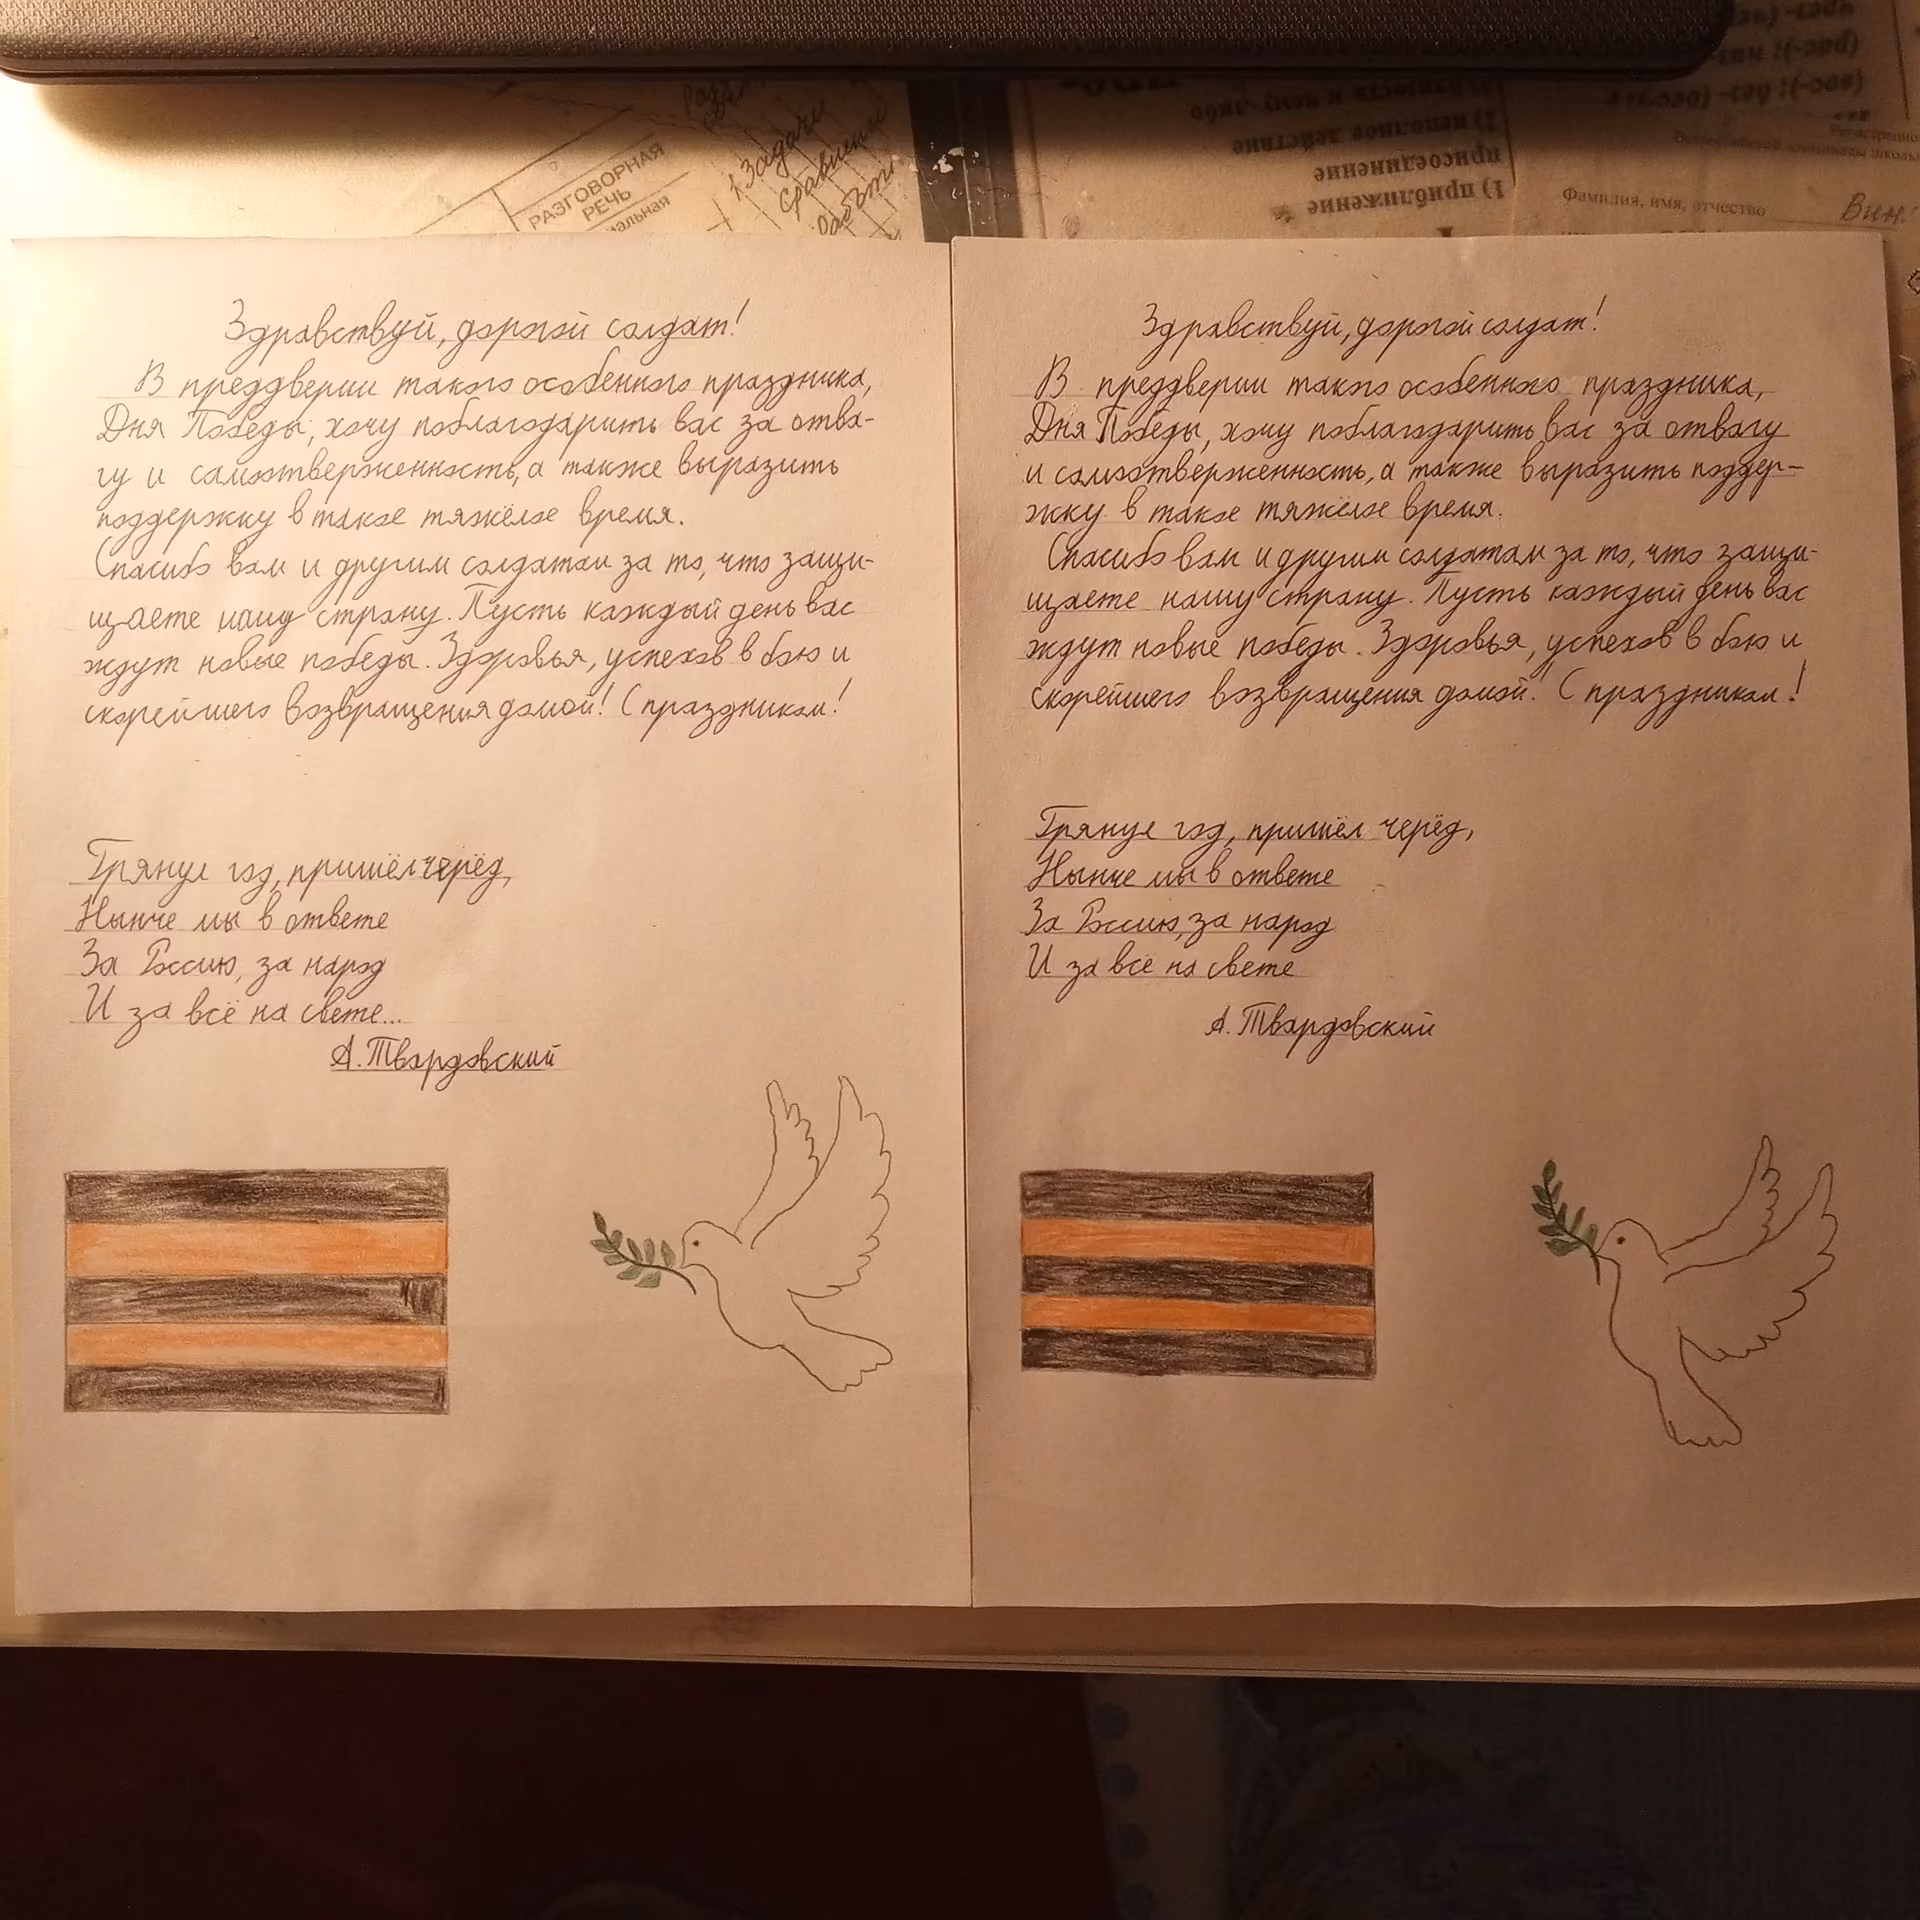 РАЗГОВОРНАЯ
РЕЧЬ
1 Задачи
1) приближение
присоединение
2) неполное действие
Фамилия, имя, отчество
Здравствуй, дорогой солдат!
В преддверии такого особенного праздника,
Дня Победы, хочу поблагодарить вас за отва-
гу и самоотверженность, а также выразить
поддержку в такое тяжёлое время.
Спасибо вам и другим солдатам за то, что защи-
щаете нашу страну. Пусть каждый день вас
ждут новые победы. Здоровья, успехов в бою и
скорейшего возвращения домой! С праздником!
Грянул год, пришёл черёд,
Нынче мы в ответе
За Россию, за народ
И за всё на свете...
А. Твардовский
Здравствуй, дорогой солдат!
В преддверии такого особенного праздника,
Дня Победы, хочу поблагодарить вас за отвагу
и самоотверженность, а также выразить поддер-
жку в такое тяжёлое время.
Спасибо вам и другим солдатам за то, что защи-
щаете нашу страну. Пусть каждый день вас
ждут новые победы. Здоровья, успехов в бою и
скорейшего возвращения домой! С праздником!
Грянул год, пришёл черёд,
Нынче мы в ответе
За Россию, за народ
И за всё на свете
А. Твардовский